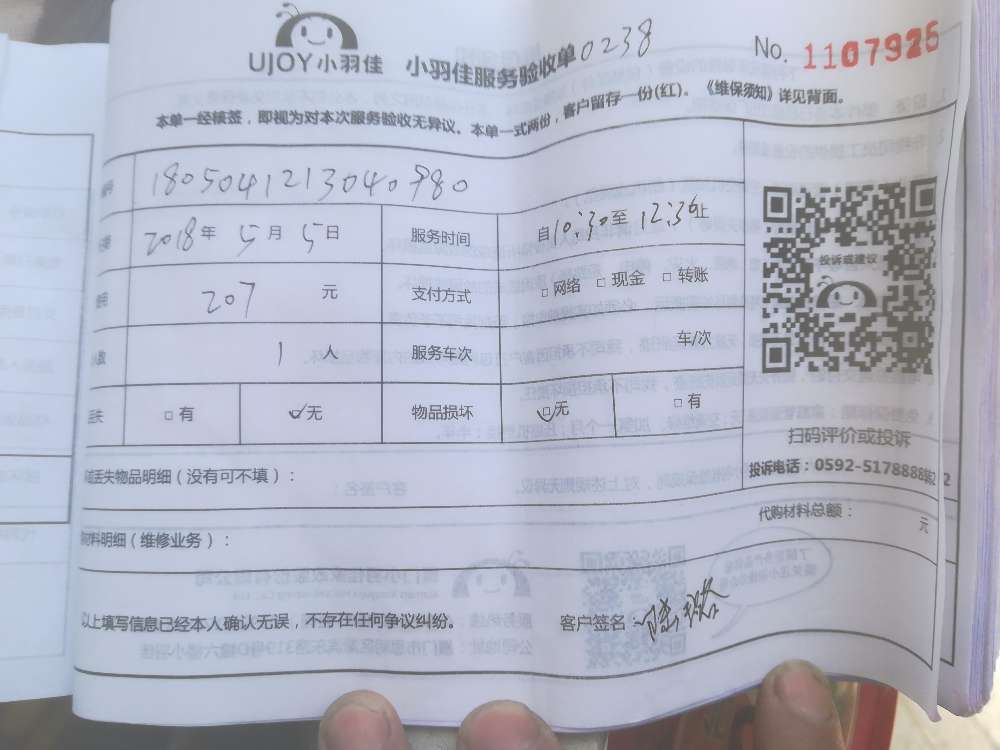 UJOY小羽佳 小羽佳服务验收单 0238 No. 1107926
本单一经核签，即视为对本次服务验收无异议。本单一式两份，客户留存一份(红)。《维保须知》详见背面。
1805041213040980
2018年5月5日 服务时间 自10:30至12:36止
207 元 支付方式 □网络 □现金 □转账
1 人 服务车次 车/次
□有 ☑无 物品损坏 ☑无 □有
丢失物品明细（没有可不填）：
材料明细（维修业务）： 代购材料总额： 元
以上填写信息已经本人确认无误，不存在任何争议纠纷。 客户签名：
投诉或建议
扫码评价或投诉
投诉电话：0592-5178888转2